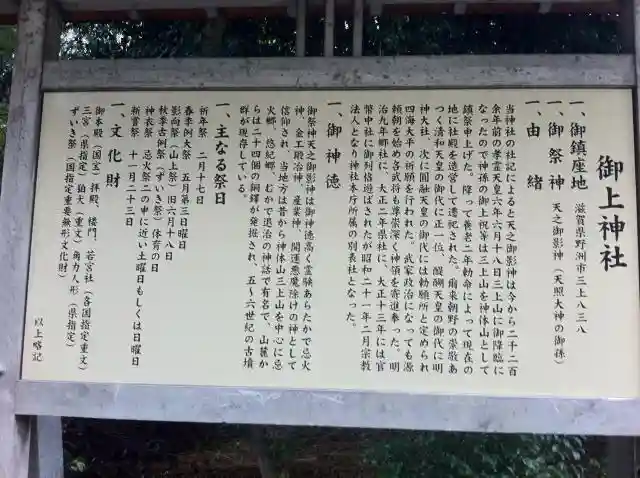 御上神社
一、御鎮座地　滋賀県野洲市三上八三八
一、御祭神　天之御影神（天照大神の御孫）
一、由緒
当神社の社記によると天之御影神は今から二千二百
余年前の孝霊天皇六年六月十八日三上山に御降臨に
なったので神孫の御上祝等は三上山を神体山として
鎮祭申上げた。降って養老二年勅命によって現在の
地に社殿を造営して遷祀された。爾来朝野の崇敬あ
つく清和天皇の御代に正一位、醍醐天皇の御代に明
神大社、次に圓融天皇の御代には勅願所と定められ
四海大平の祈願を行われた。武家政治になっても源
頼朝を始め各武将も尊崇深く神領を寄進奉った。明
治九年郷社に、大正二年県社に、大正十三年には官
幣中社に御列格遊ばされたが昭和二十一年二月宗教
法人となり神社本庁所属の別表社となった。
一、御神徳
御祭神天之御影神は御神徳高く霊験あらたかで忌火
神、金工鍛冶神、産業神、開運悪魔除けの神として
信仰され、当地方は昔から神体山三上山を中心に忌
火郷、悠紀郷、むかで退治の神話で有名で、山麓か
らは二十四個の銅鐸が発掘され、五、六世紀の古墳
群が現存している。
一、主なる祭日
祈年祭　二月十七日
春季例大祭　五月第三日曜日
影向祭（山上祭）旧六月十八日
秋季古例祭（ずいき祭）体育の日
神衣祭、忌火祭二の申に近い土曜日もしくは日曜日
新嘗祭　十一月二十三日
一、文化財
御本殿（国宝）拝殿、楼門、若宮社（各国指定重文）
三宮（県指定）狛犬（重文）角力人形（県指定）
ずいき祭（国指定重要無形文化財）
以上略記